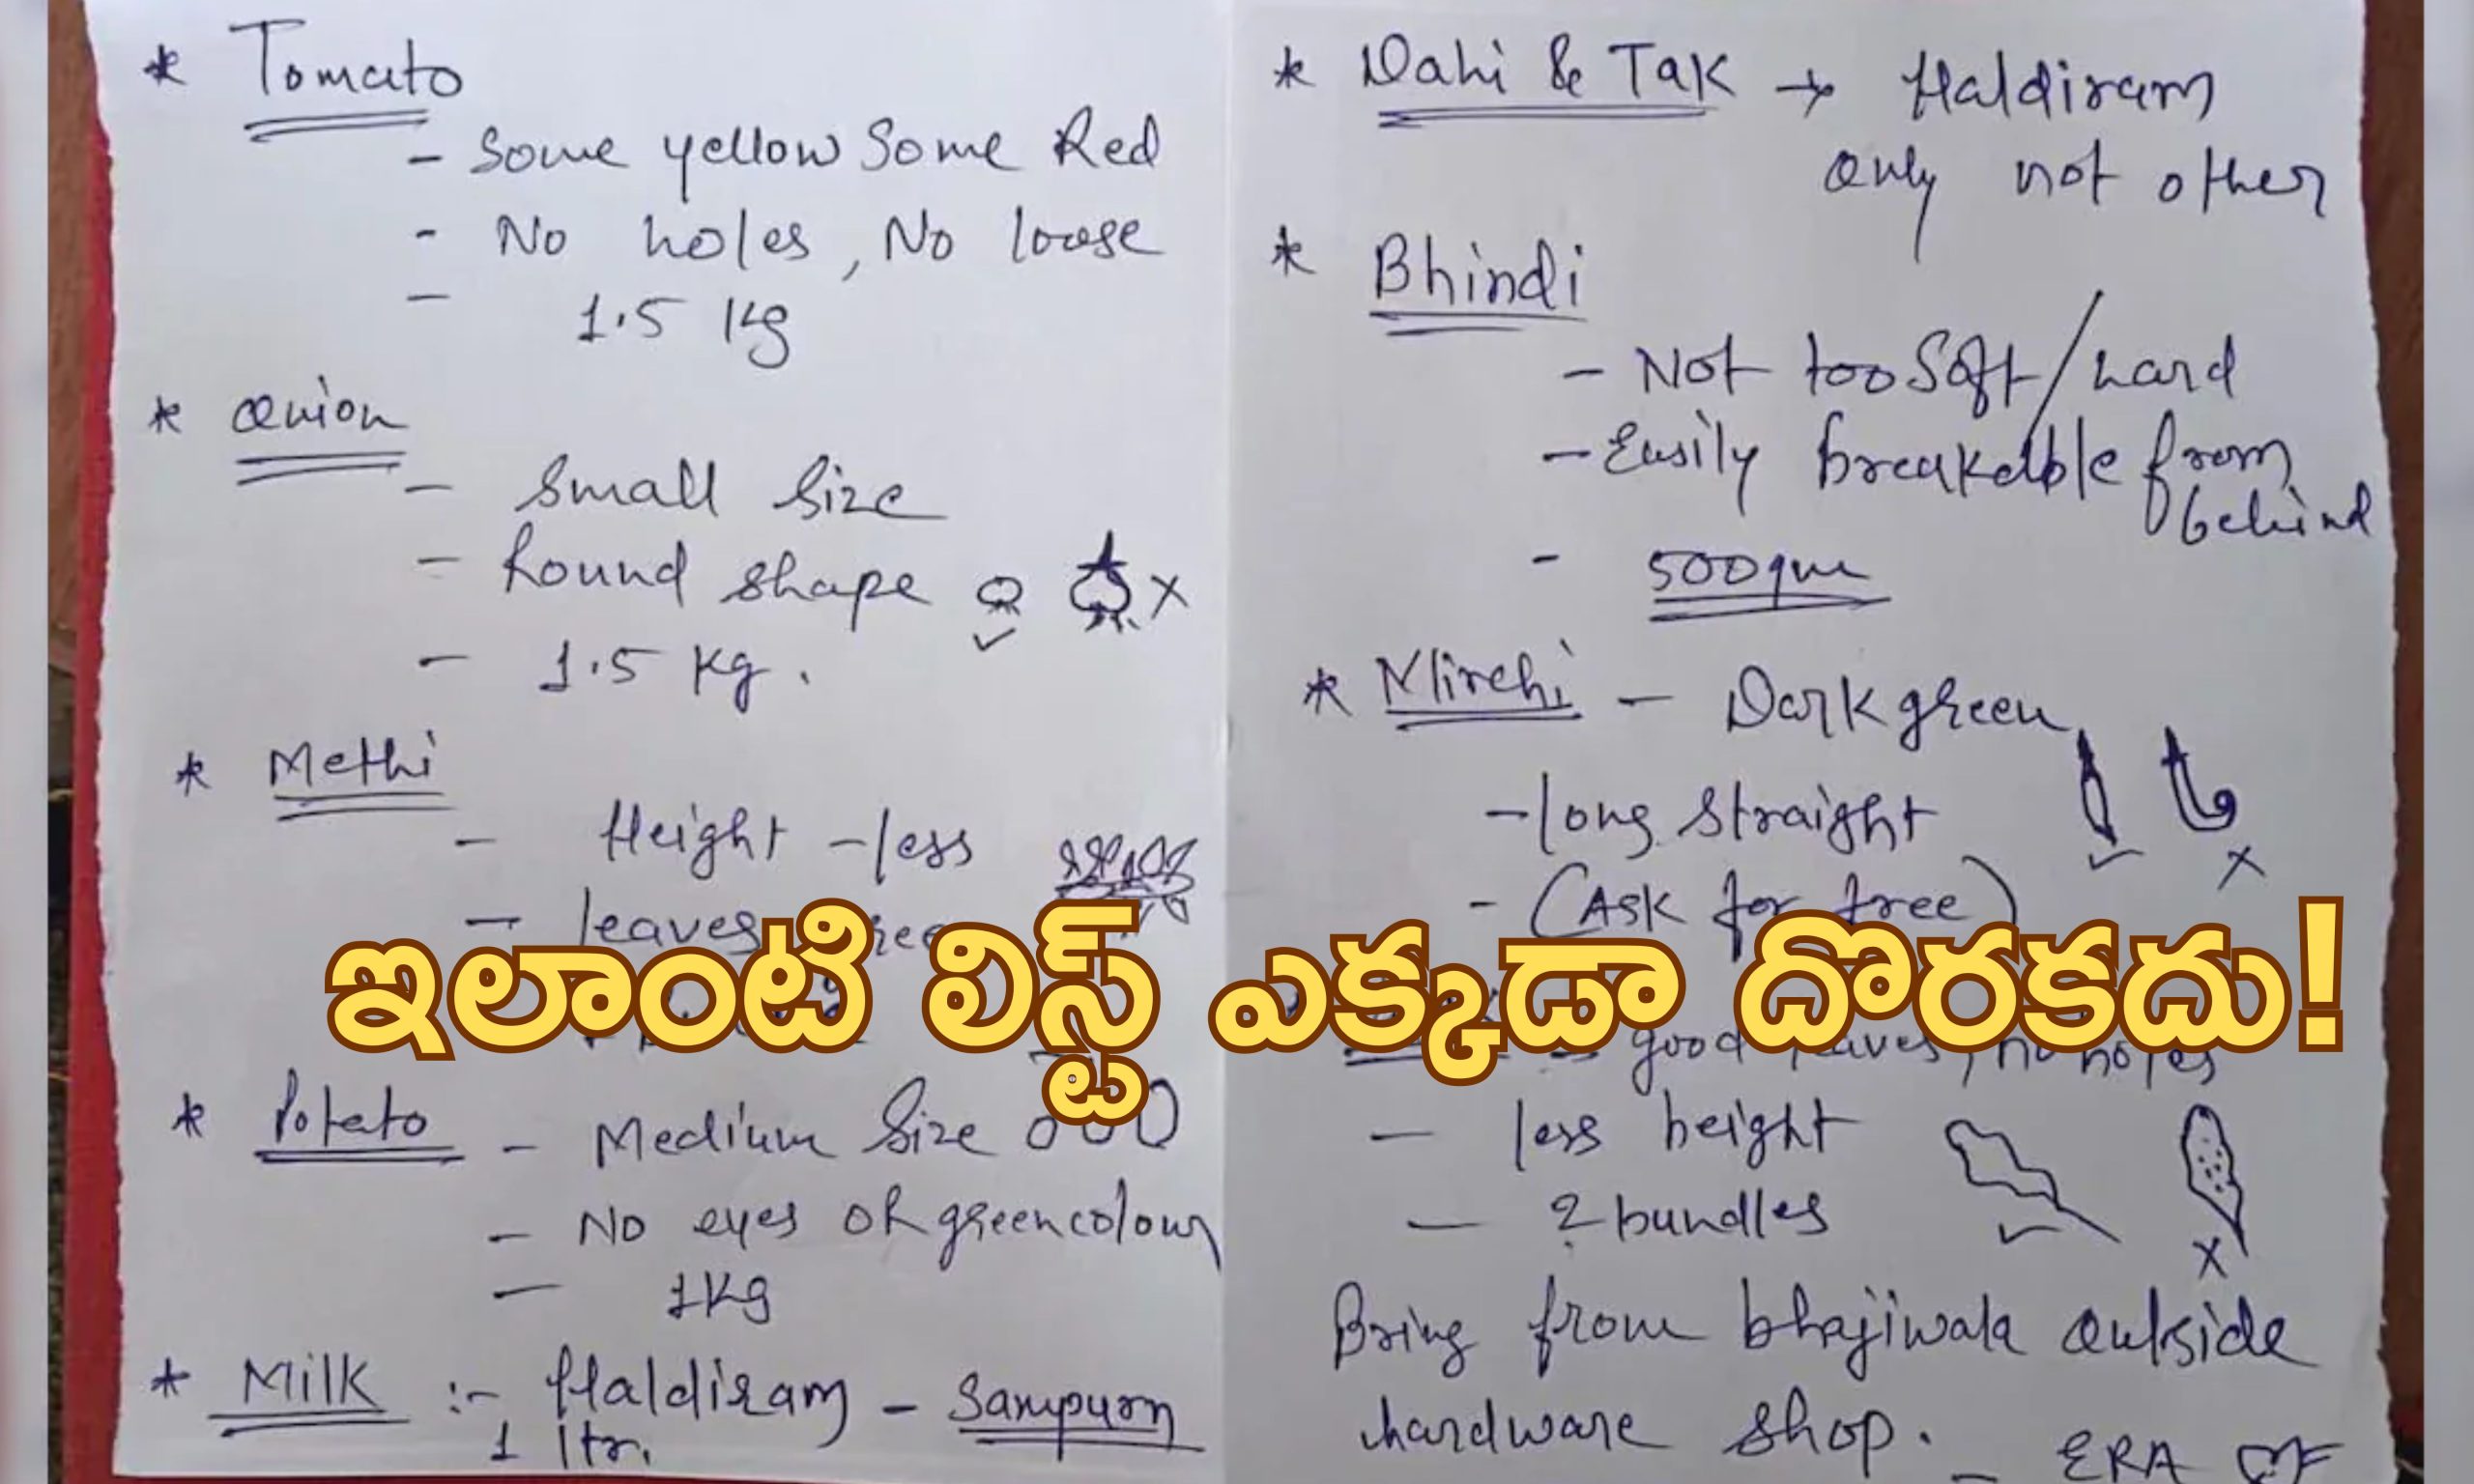 * Tomato
- Some yellow Some Red
- No holes, No loose
- 1.5 Kg
* Onion
- Small Size
- Round shape
- 1.5 Kg.
* Methi
- Height - less
- leaves
* Potato - Medium Size
- No eyes OR green colour
- 1 Kg
* Milk :- Haldiram - Sampurn
1 ltr.
* Dahi & Tak → Haldiram
only not other
* Bhindi
- Not too Soft/hard
- Easily breakable from
behind
- 500gm
* Mirchi - Dark green
- long straight
- (Ask for free)
ఇలాంటి లిస్ట్ ఎక్కడా దొరకదు!
- good leaves, no holes
- less height
- 2 bundles
Bring from bhajiwala outside
hardware shop.
- ERA